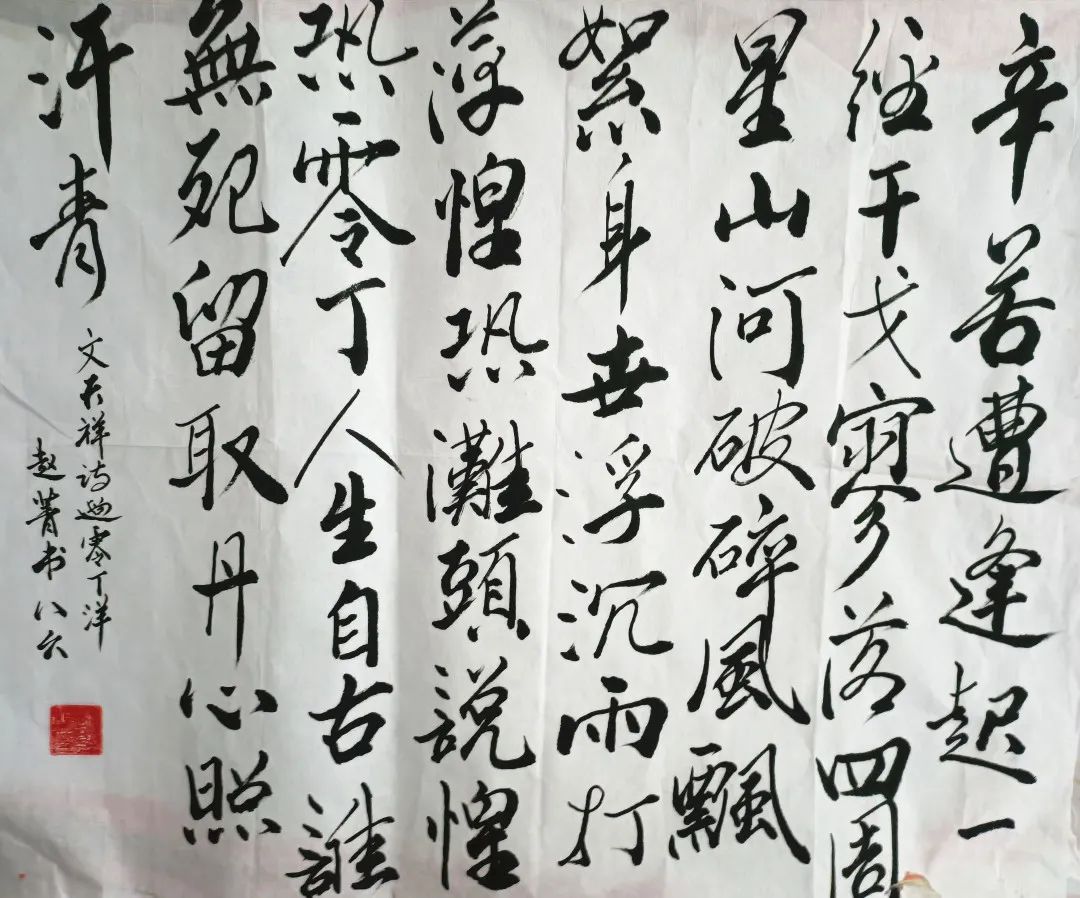 辛苦遭逢起一
经干戈寥落四周
星山河破碎風飄
絮身世浮沉雨打
萍惶恐灘頭説惶
恐零丁人生自古誰
無死留取丹心照
汗青
文天祥诗過零丁洋
赵菁书八六